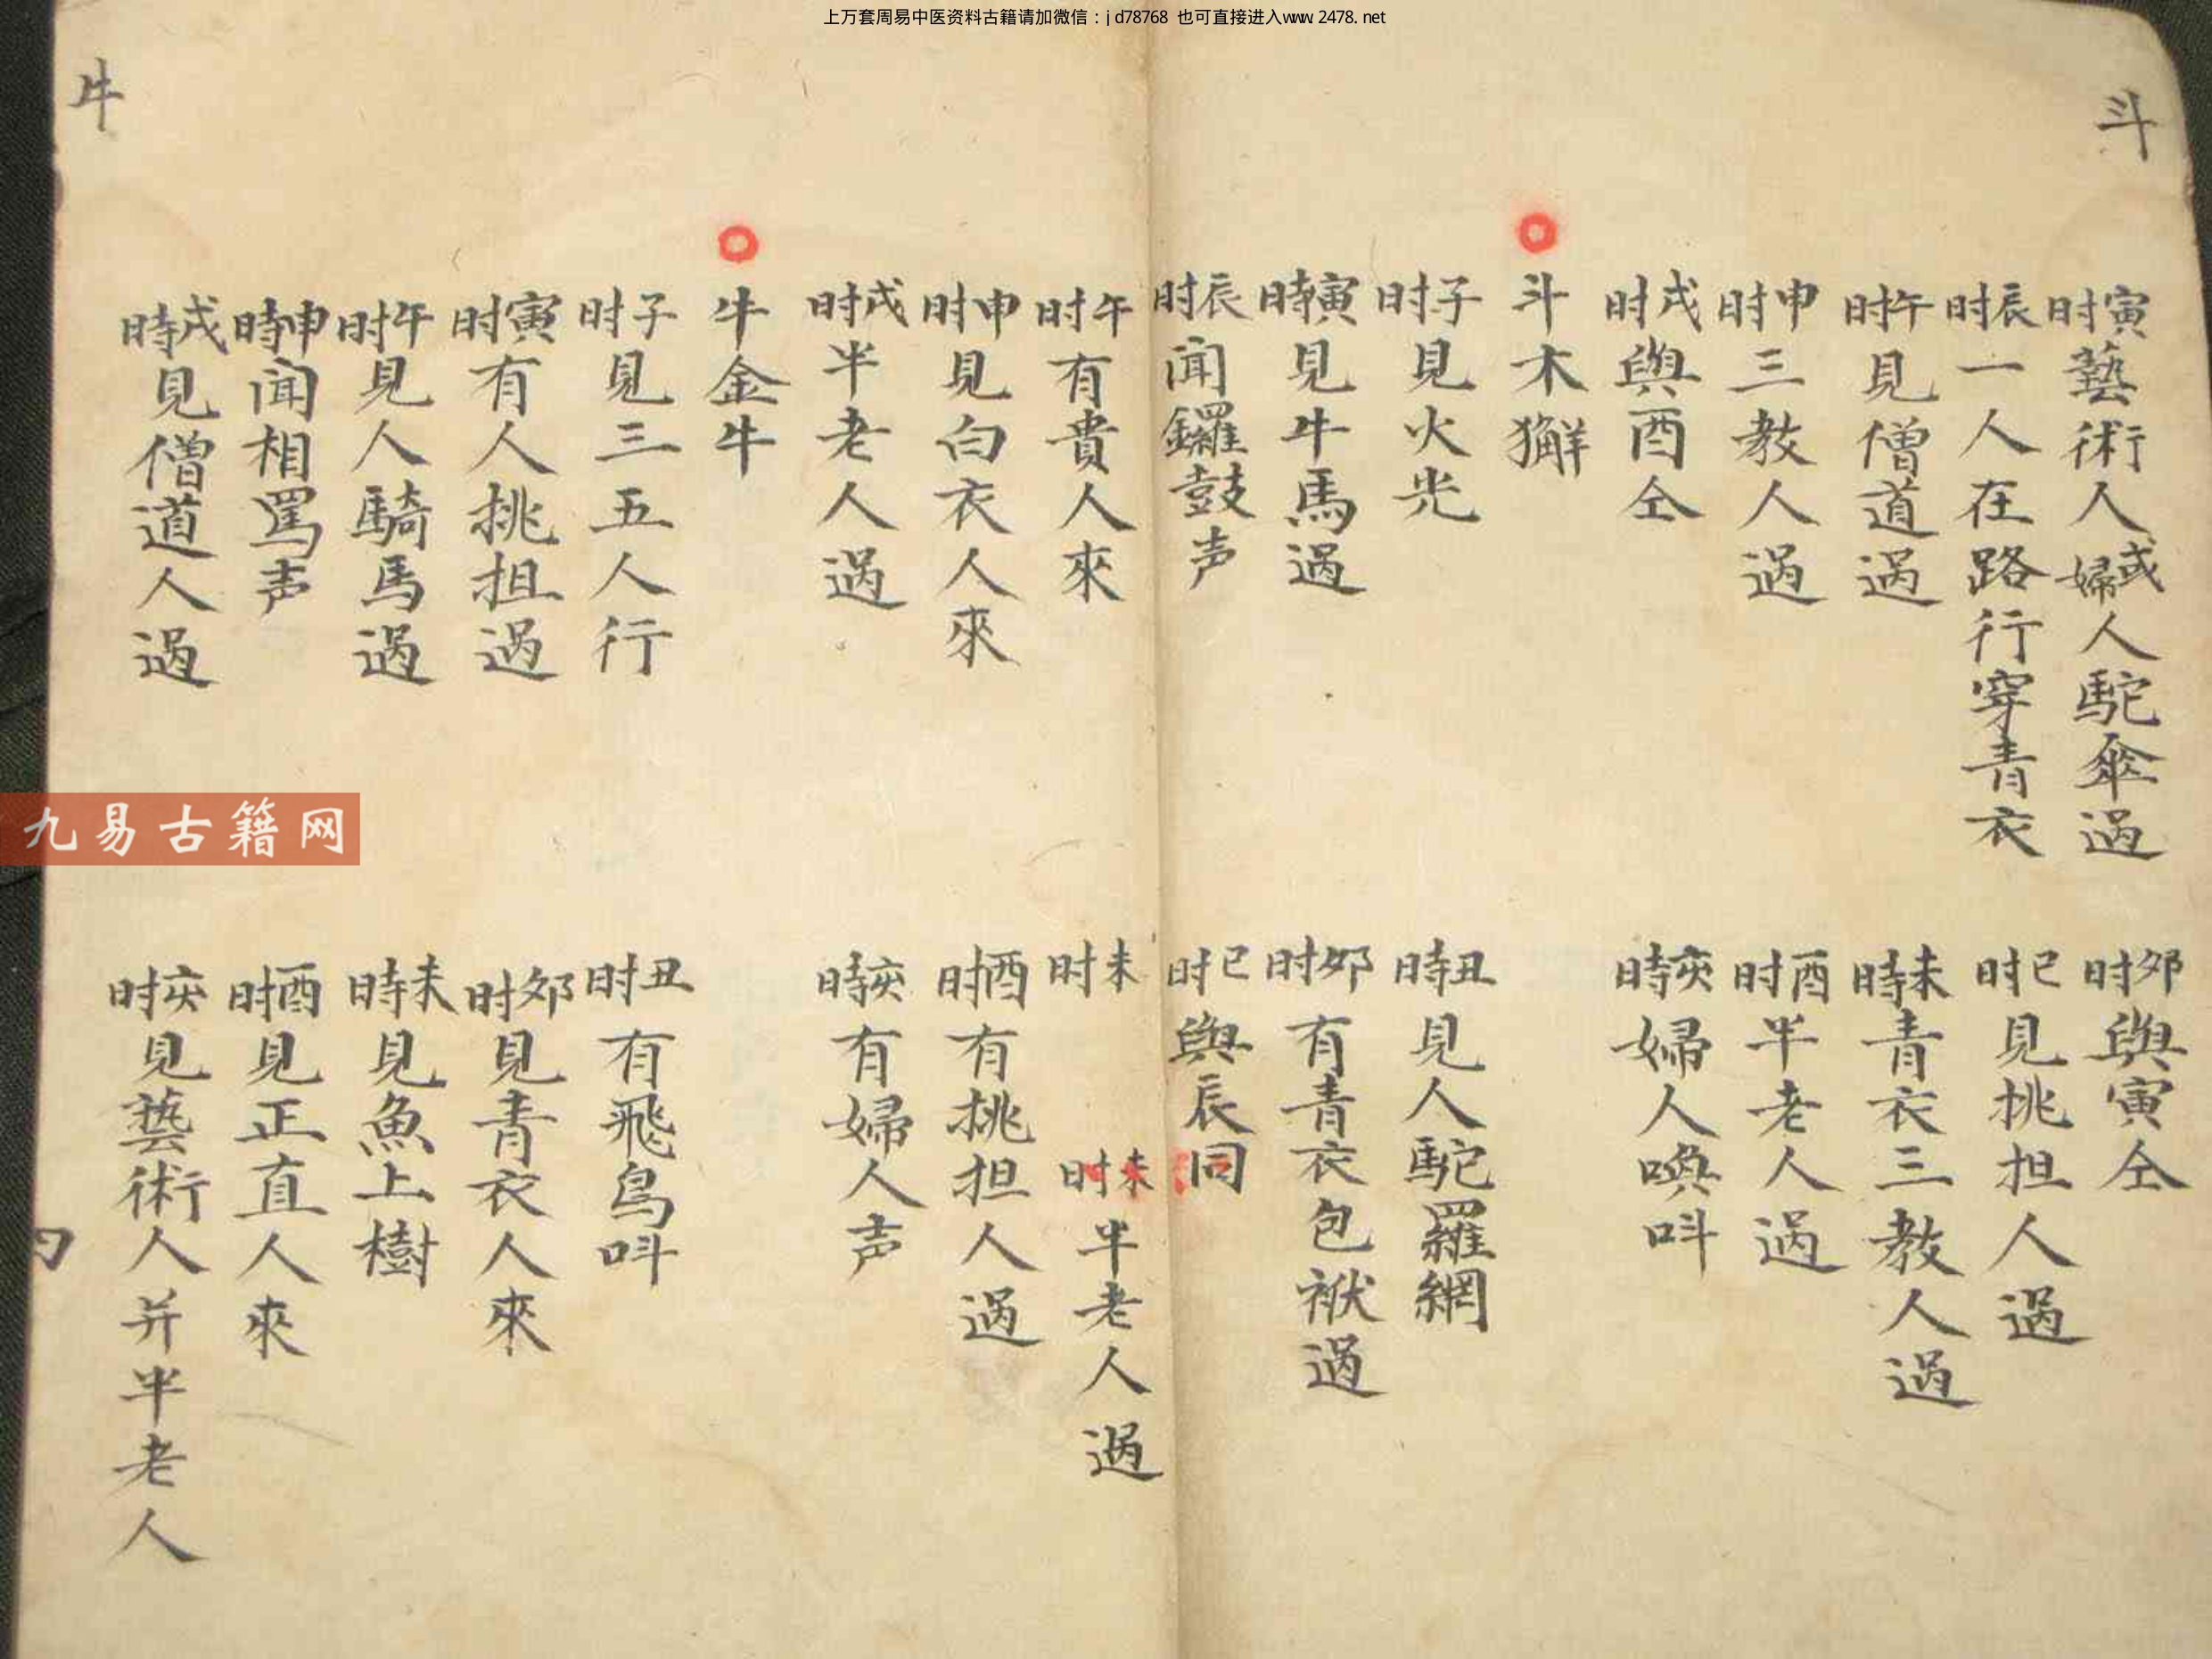 上万套周易中医资料古籍请加微信：jd78768 也可直接进入www.2478.net
斗
寅时藝術人或婦人駝傘過
夘时與寅仝
辰时一人在路行穿青衣
巳时見挑担人過
午时見僧道過
未時青衣三教人過
申时三教人過
酉时半老人過
戌时與酉仝
亥時婦人喚呌
斗木獬
子时見火光
丑時見人駝羅網
寅時見牛馬過
夘时有青衣包袱過
辰时闻鑼鼓声
巳时與辰同
午时有貴人來
未时
未时半老人過
申时見白衣人來
酉时有挑担人過
戌时半老人過
亥時有婦人声
牛金牛
子时見三五人行
丑时有飛鳥呌
寅时有人挑担過
夘时見青衣人來
午时見人騎馬過
未時見魚上樹
申時闻相罵声
酉时見正直人來
戌時見僧道人過
亥时見藝術人并半老人
牛
九易古籍网